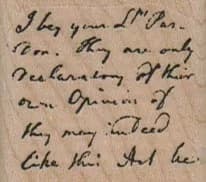 I beg your Lps Par-
don. They are only
declaratory of their
own Opinion of
they may indeed
like this Act be